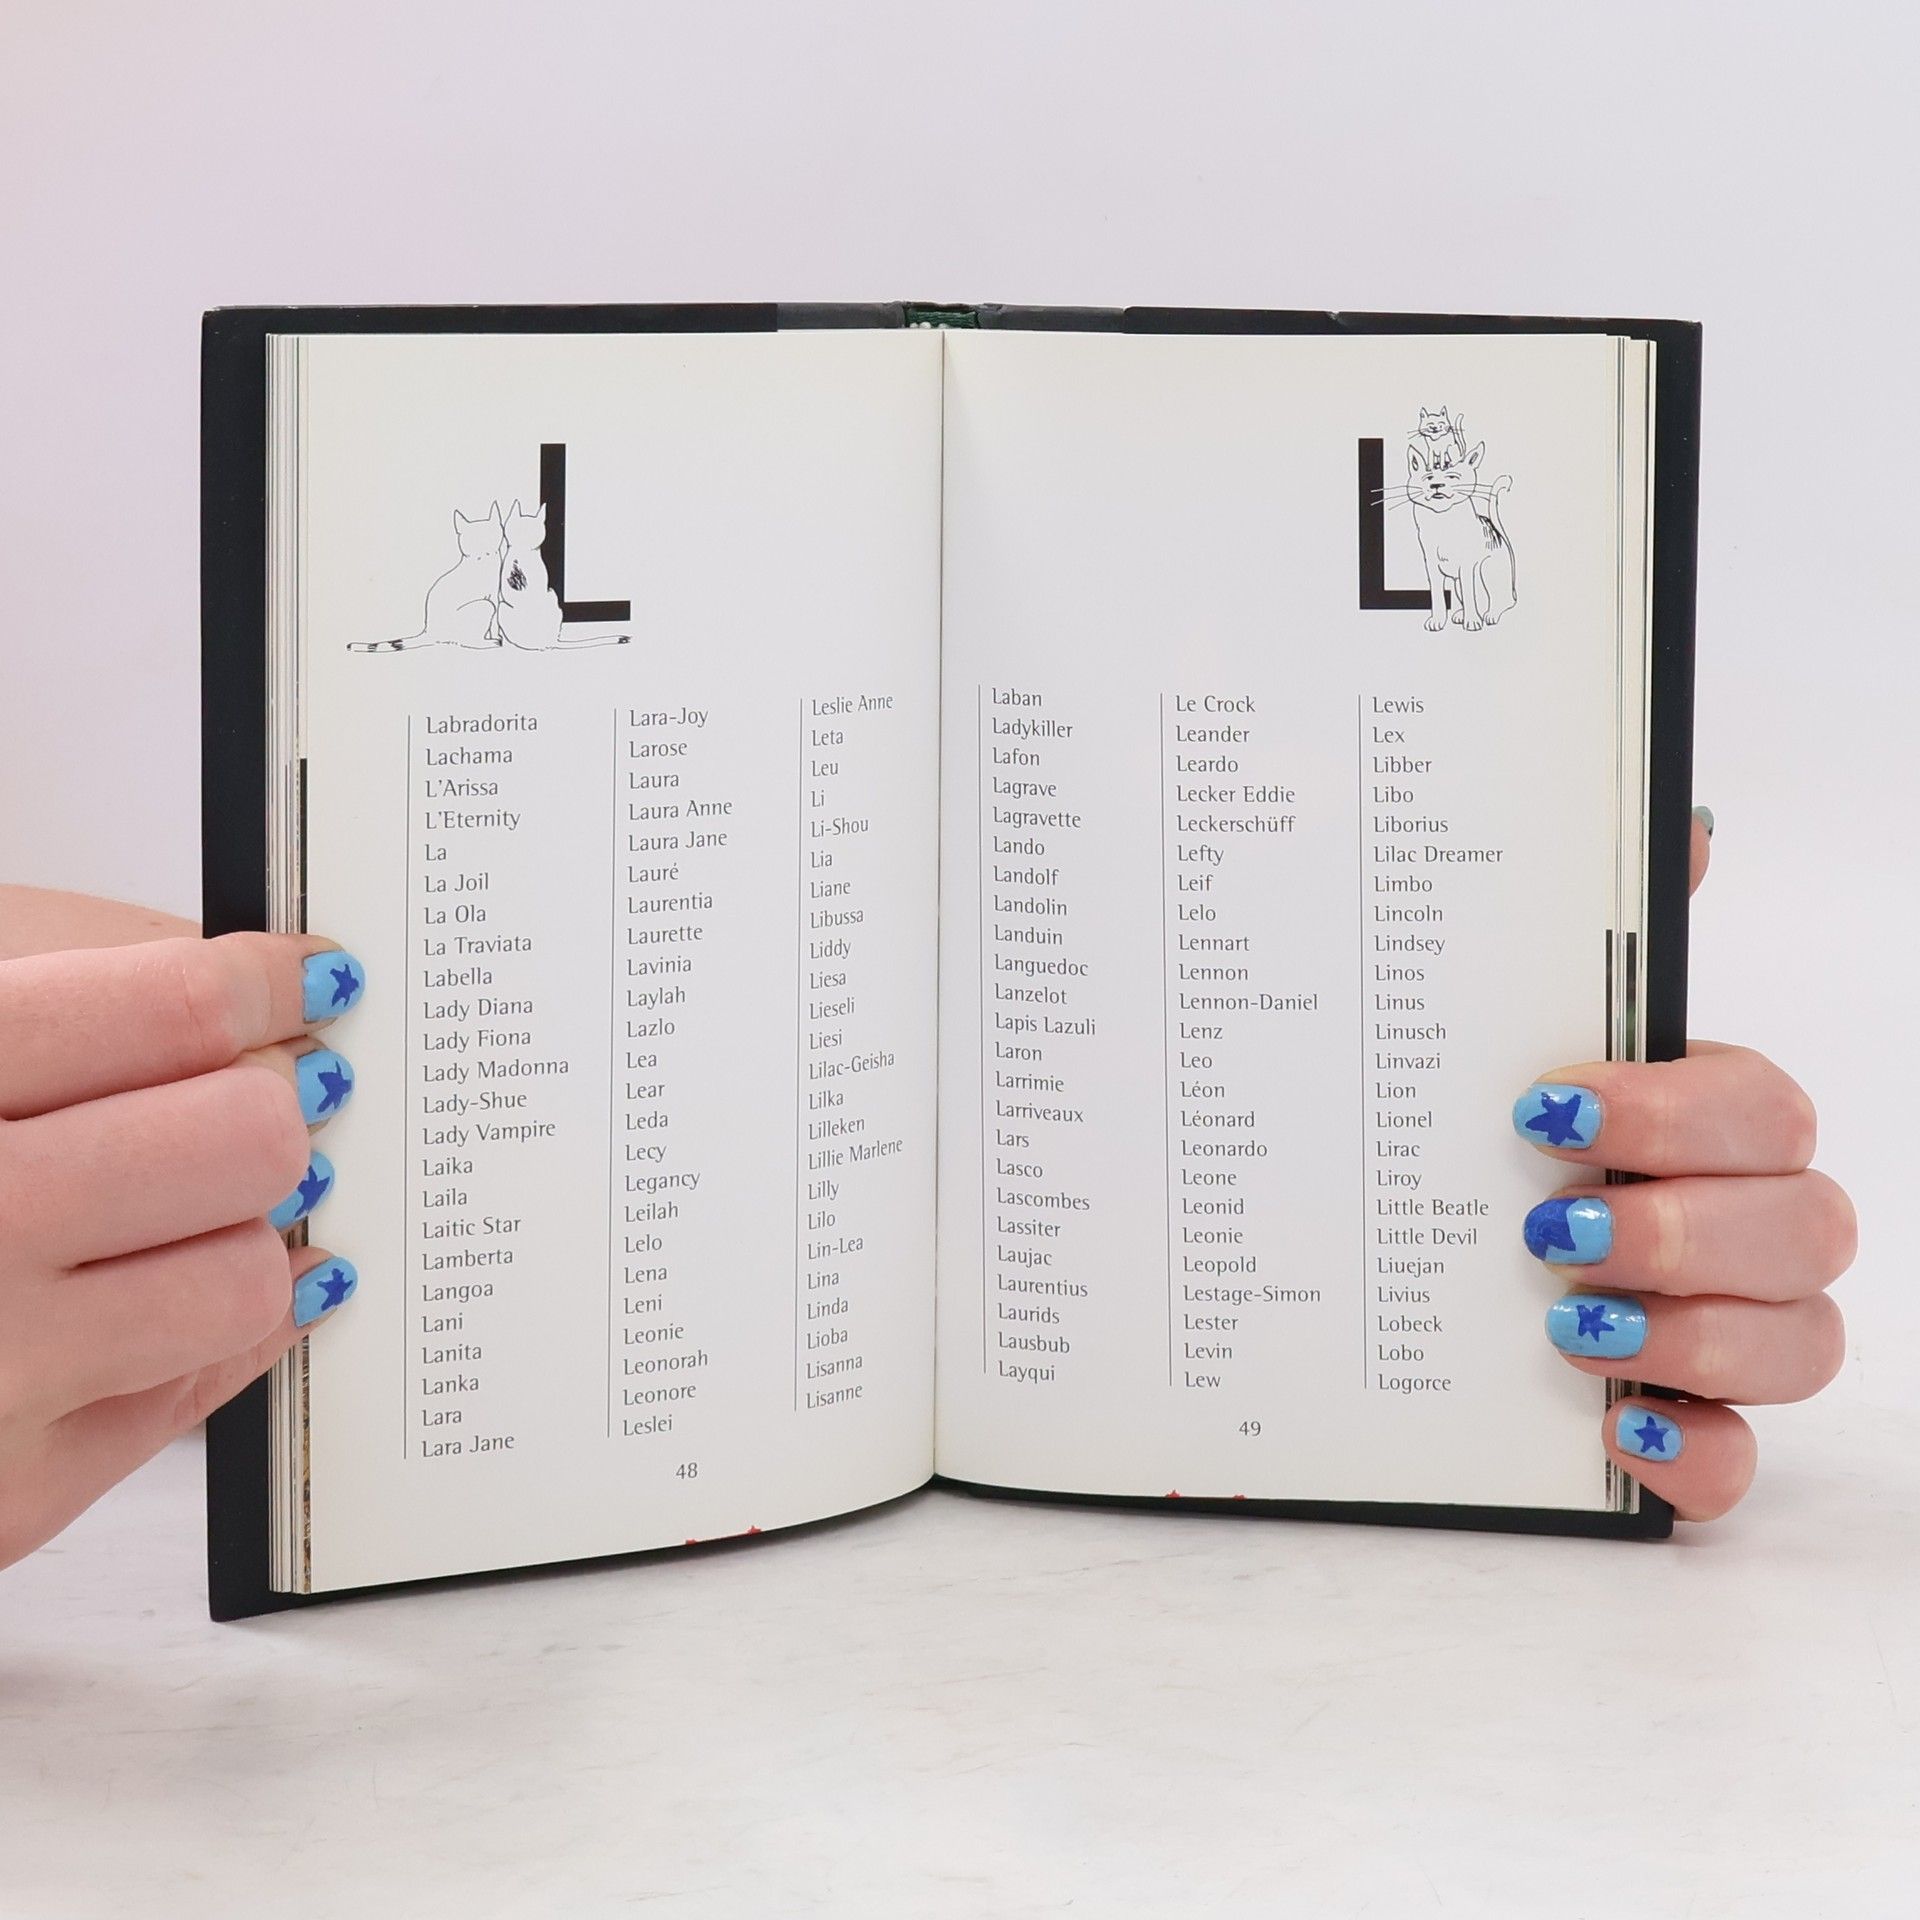 L
Labradorita
Lachama
L'Arissa
L'Eternity
La
La Joil
La Ola
La Traviata
Labella
Lady Diana
Lady Fiona
Lady Madonna
Lady-Shue
Lady Vampire
Laika
Laila
Laitic Star
Lamberta
Langoa
Lani
Lanita
Lanka
Lara
Lara Jane
Lara-Joy
Larose
Laura
Laura Anne
Laura Jane
Lauré
Laurentia
Laurette
Lavinia
Laylah
Lazlo
Lea
Lear
Leda
Lecy
Legancy
Leilah
Lelo
Lena
Leni
Leonie
Leonorah
Leonore
Leslei
Leslie Anne
Leta
Leu
Li
Li-Shou
Lia
Liane
Libussa
Liddy
Liesa
Lieseli
Liesi
Lilac-Geisha
Lilka
Lilleken
Lillie Marlene
Lilly
Lilo
Lin-Lea
Lina
Linda
Lioba
Lisanna
Lisanne
48
L
Laban
Ladykiller
Lafon
Lagrave
Lagravette
Lando
Landolf
Landolin
Landuin
Languedoc
Lanzelot
Lapis Lazuli
Laron
Larrimie
Larriveaux
Lars
Lasco
Lascombes
Lassiter
Laujac
Laurentius
Laurids
Lausbub
Layqui
Le Crock
Leander
Leardo
Lecker Eddie
Leckerschüff
Lefty
Leif
Lelo
Lennart
Lennon
Lennon-Daniel
Lenz
Leo
Léon
Léonard
Leonardo
Leone
Leonid
Leonie
Leopold
Lestage-Simon
Lester
Levin
Lew
Lewis
Lex
Libber
Libo
Liborius
Lilac Dreamer
Limbo
Lincoln
Lindsey
Linos
Linus
Linusch
Linvazi
Lion
Lionel
Lirac
Liroy
Little Beatle
Little Devil
Liuejan
Livius
Lobeck
Lobo
Logorce
49